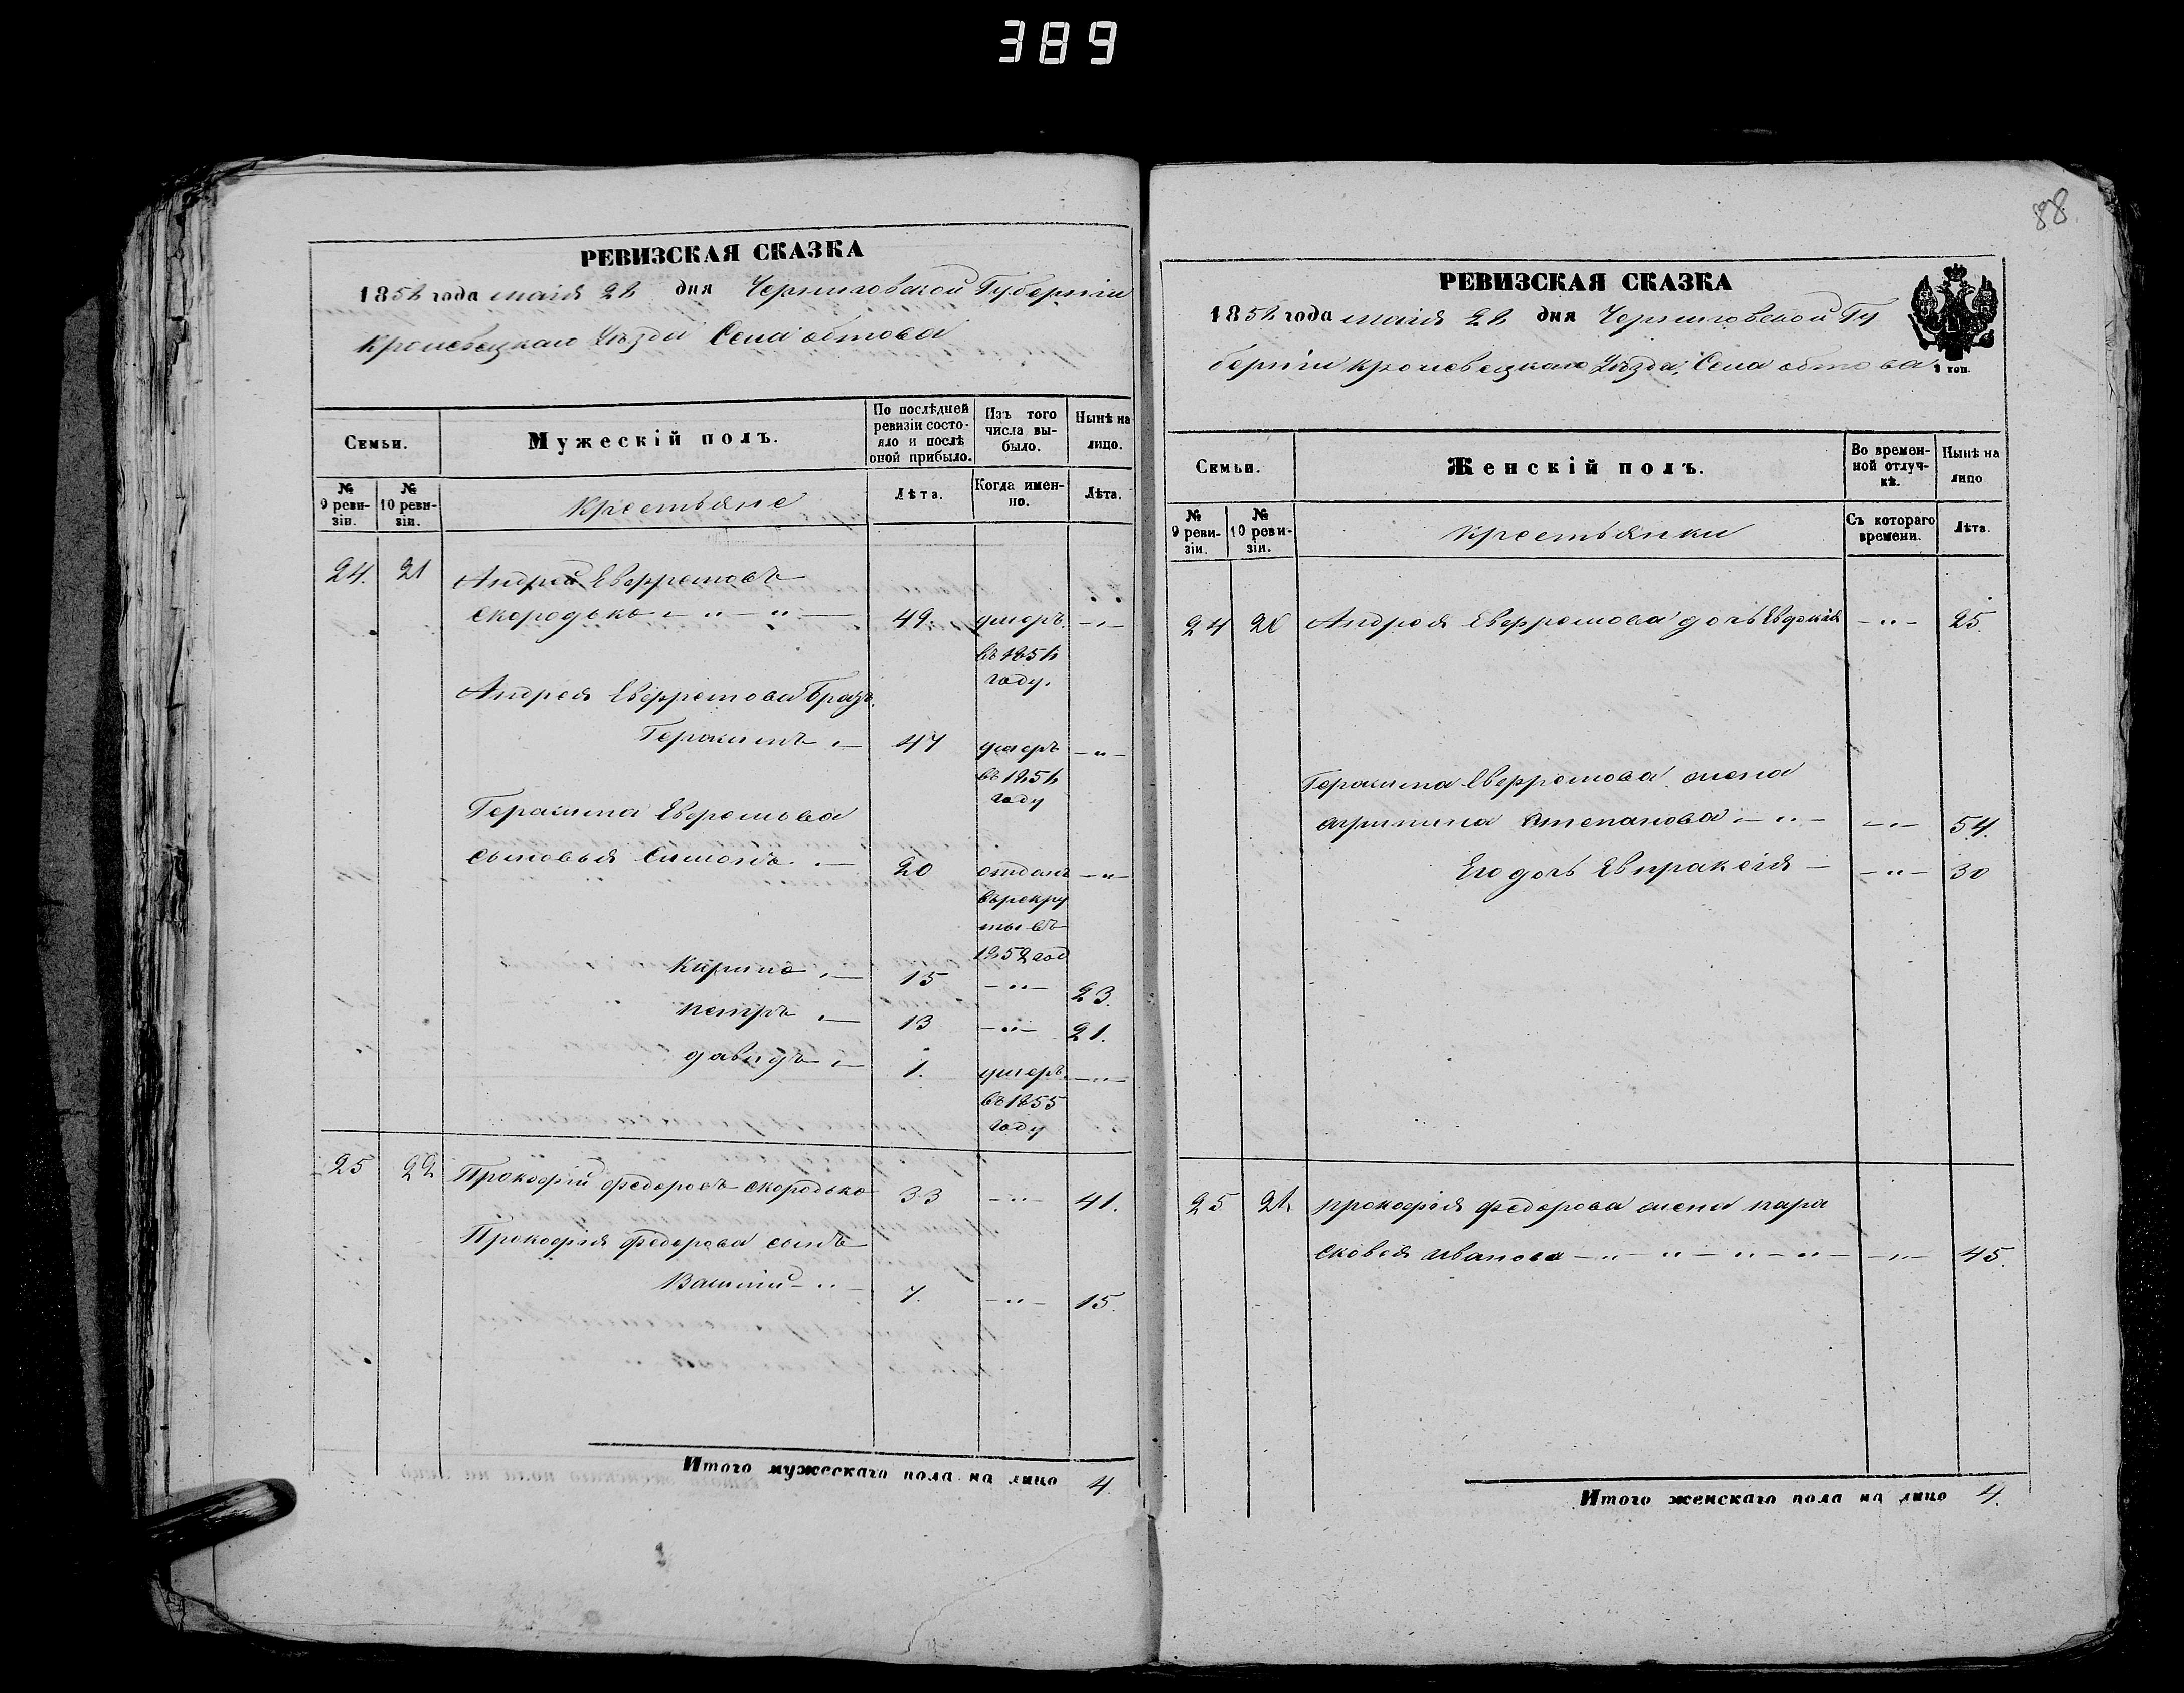 389
РЕВИЗСКАЯ СКАЗКА
1858 года маія 28 дня Черниговской Губерніи
Кролевецкаго Уѣзда Села обтова
Семьи.
Мужескій полъ.
По послѣдней ревизіи состояло и послѣ оной прибыло.
Изъ того числа выбыло.
Нынѣ на лицо.
№ 9 ревизіи.
№ 10 ревизіи.
Крестьяне
Лѣта.
Когда именно.
Лѣта.
24. 21 Андрей Евфремовъ
скородько - " - " - 49. умеръ - " -
въ 1851
году.
Андрея Евфремова братъ
Герасимъ " - 47 умеръ - " -
въ 1851
году
Герасима Евфремова
сыновья Симонъ " - 20 отданъ - " -
въ рекру
ты въ
1852 год
Кирило " - 15 - " - 23.
петръ " - 13 - " - 21.
давидъ " - 1. умеръ - " -
въ 1855
году
25 22 Прокофій федоровъ скородько 33 - " - 41.
Прокофія федорова сынъ
Василій - " - 7. - " - 15.
Итого мужескаго пола на лицо 4
88
РЕВИЗСКАЯ СКАЗКА
1858 года маія 28 дня Черниговской Гу
берніи кролевецкаго Уѣзда Села обтова
коп.
Семьи.
Женскій полъ.
Во временной отлучкѣ.
Нынѣ на лицо
№ 9 ревизіи.
№ 10 ревизіи.
Крестьянки
Съ котораго времени.
Лѣта.
24 Андрея Евфремова дочь Евдокія - " - 25.
Герасима Евфремова жена
агрипина степанова - " - - " - 54.
Его дочь Евпраксія - - " - 30
25 21 прокофія федорова жена пара
сковія иванова - " - " - " - " - - " - 45.
Итого женскаго пола на лицо 4.